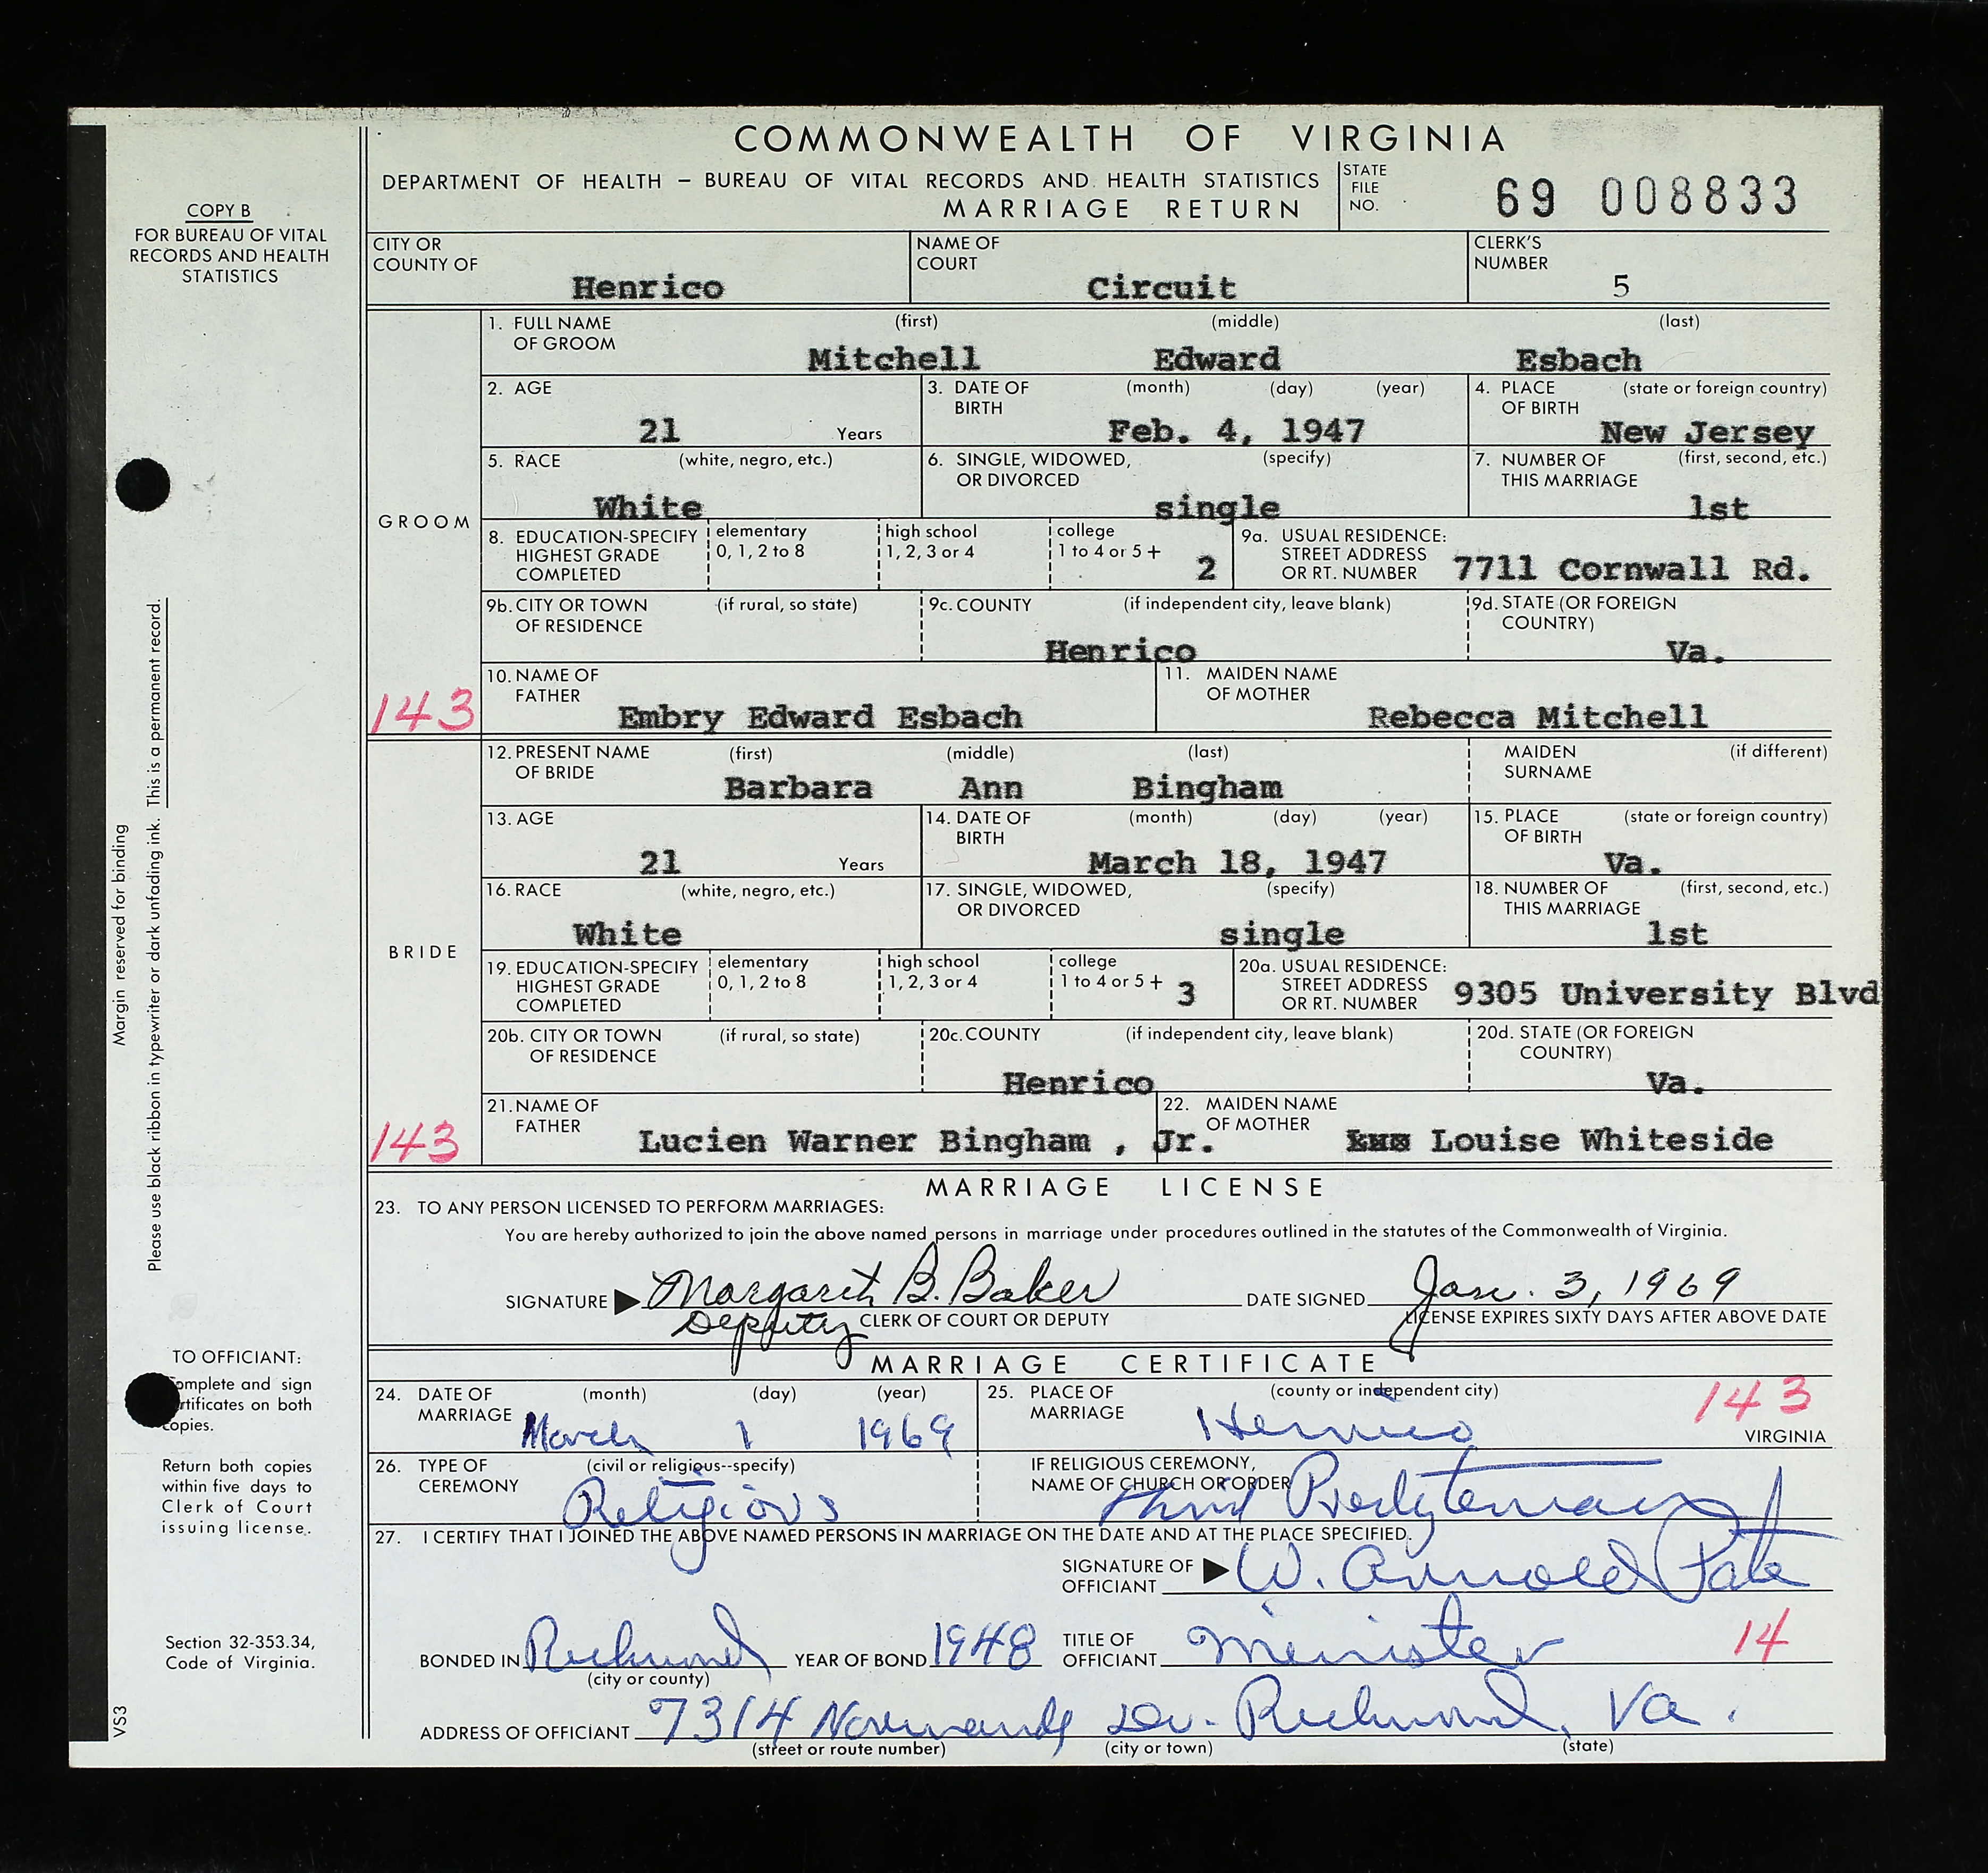 COMMONWEALTH OF VIRGINIA
DEPARTMENT OF HEALTH – BUREAU OF VITAL RECORDS AND HEALTH STATISTICS
MARRIAGE RETURN
STATE FILE NO. 69 008833
COPY B
FOR BUREAU OF VITAL
RECORDS AND HEALTH
STATISTICS
CITY OR COUNTY OF Henrico
NAME OF COURT Circuit
CLERK'S NUMBER 5
GROOM
143
1. FULL NAME OF GROOM (first) Mitchell (middle) Edward (last) Esbach
2. AGE 21 Years
3. DATE OF BIRTH (month) (day) (year) Feb. 4, 1947
4. PLACE OF BIRTH (state or foreign country) New Jersey
5. RACE (white, negro, etc.) White
6. SINGLE, WIDOWED, OR DIVORCED (specify) single
7. NUMBER OF THIS MARRIAGE (first, second, etc.) 1st
8. EDUCATION-SPECIFY HIGHEST GRADE COMPLETED elementary 0, 1, 2 to 8 high school 1, 2, 3 or 4 college 1 to 4 or 5 + 2
9a. USUAL RESIDENCE: STREET ADDRESS OR RT. NUMBER 7711 Cornwall Rd.
9b. CITY OR TOWN OF RESIDENCE (if rural, so state)
9c. COUNTY (if independent city, leave blank) Henrico
9d. STATE (OR FOREIGN COUNTRY) Va.
10. NAME OF FATHER Embry Edward Esbach
11. MAIDEN NAME OF MOTHER Rebecca Mitchell
BRIDE
143
12. PRESENT NAME OF BRIDE (first) Barbara (middle) Ann (last) Bingham
MAIDEN SURNAME (if different)
13. AGE 21 Years
14. DATE OF BIRTH (month) (day) (year) March 18, 1947
15. PLACE OF BIRTH (state or foreign country) Va.
16. RACE (white, negro, etc.) White
17. SINGLE, WIDOWED, OR DIVORCED (specify) single
18. NUMBER OF THIS MARRIAGE (first, second, etc.) 1st
19. EDUCATION-SPECIFY HIGHEST GRADE COMPLETED elementary 0, 1, 2 to 8 high school 1, 2, 3 or 4 college 1 to 4 or 5 + 3
20a. USUAL RESIDENCE: STREET ADDRESS OR RT. NUMBER 9305 University Blvd
20b. CITY OR TOWN OF RESIDENCE (if rural, so state)
20c. COUNTY (if independent city, leave blank) Henrico
20d. STATE (OR FOREIGN COUNTRY) Va.
21. NAME OF FATHER Lucien Warner Bingham , Jr.
22. MAIDEN NAME OF MOTHER Louise Whiteside
MARRIAGE LICENSE
23. TO ANY PERSON LICENSED TO PERFORM MARRIAGES:
You are hereby authorized to join the above named persons in marriage under procedures outlined in the statutes of the Commonwealth of Virginia.
SIGNATURE Margaret B. Baker DATE SIGNED Jan. 3, 1969
Deputy CLERK OF COURT OR DEPUTY LICENSE EXPIRES SIXTY DAYS AFTER ABOVE DATE
MARRIAGE CERTIFICATE
24. DATE OF MARRIAGE (month) (day) (year) March 1 1969
25. PLACE OF MARRIAGE (county or independent city) Henrico 143 VIRGINIA
26. TYPE OF CEREMONY (civil or religious--specify) Religious
IF RELIGIOUS CEREMONY, NAME OF CHURCH OR ORDER Presbyterian
27. I CERTIFY THAT I JOINED THE ABOVE NAMED PERSONS IN MARRIAGE ON THE DATE AND AT THE PLACE SPECIFIED.
SIGNATURE OF OFFICIANT W. Arnold Pate
BONDED IN Richmond (city or county) YEAR OF BOND 1948 TITLE OF OFFICIANT Minister 14
ADDRESS OF OFFICIANT 7314 Normandy Dr. Richmond, Va.
(street or route number) (city or town) (state)
Margin reserved for binding
Please use black ribbon in typewriter or dark unfading ink. This is a permanent record.
TO OFFICIANT:
omplete and sign
rtificates on both
copies.
Return both copies
within five days to
Clerk of Court
issuing license.
Section 32-353.34,
Code of Virginia.
VS3